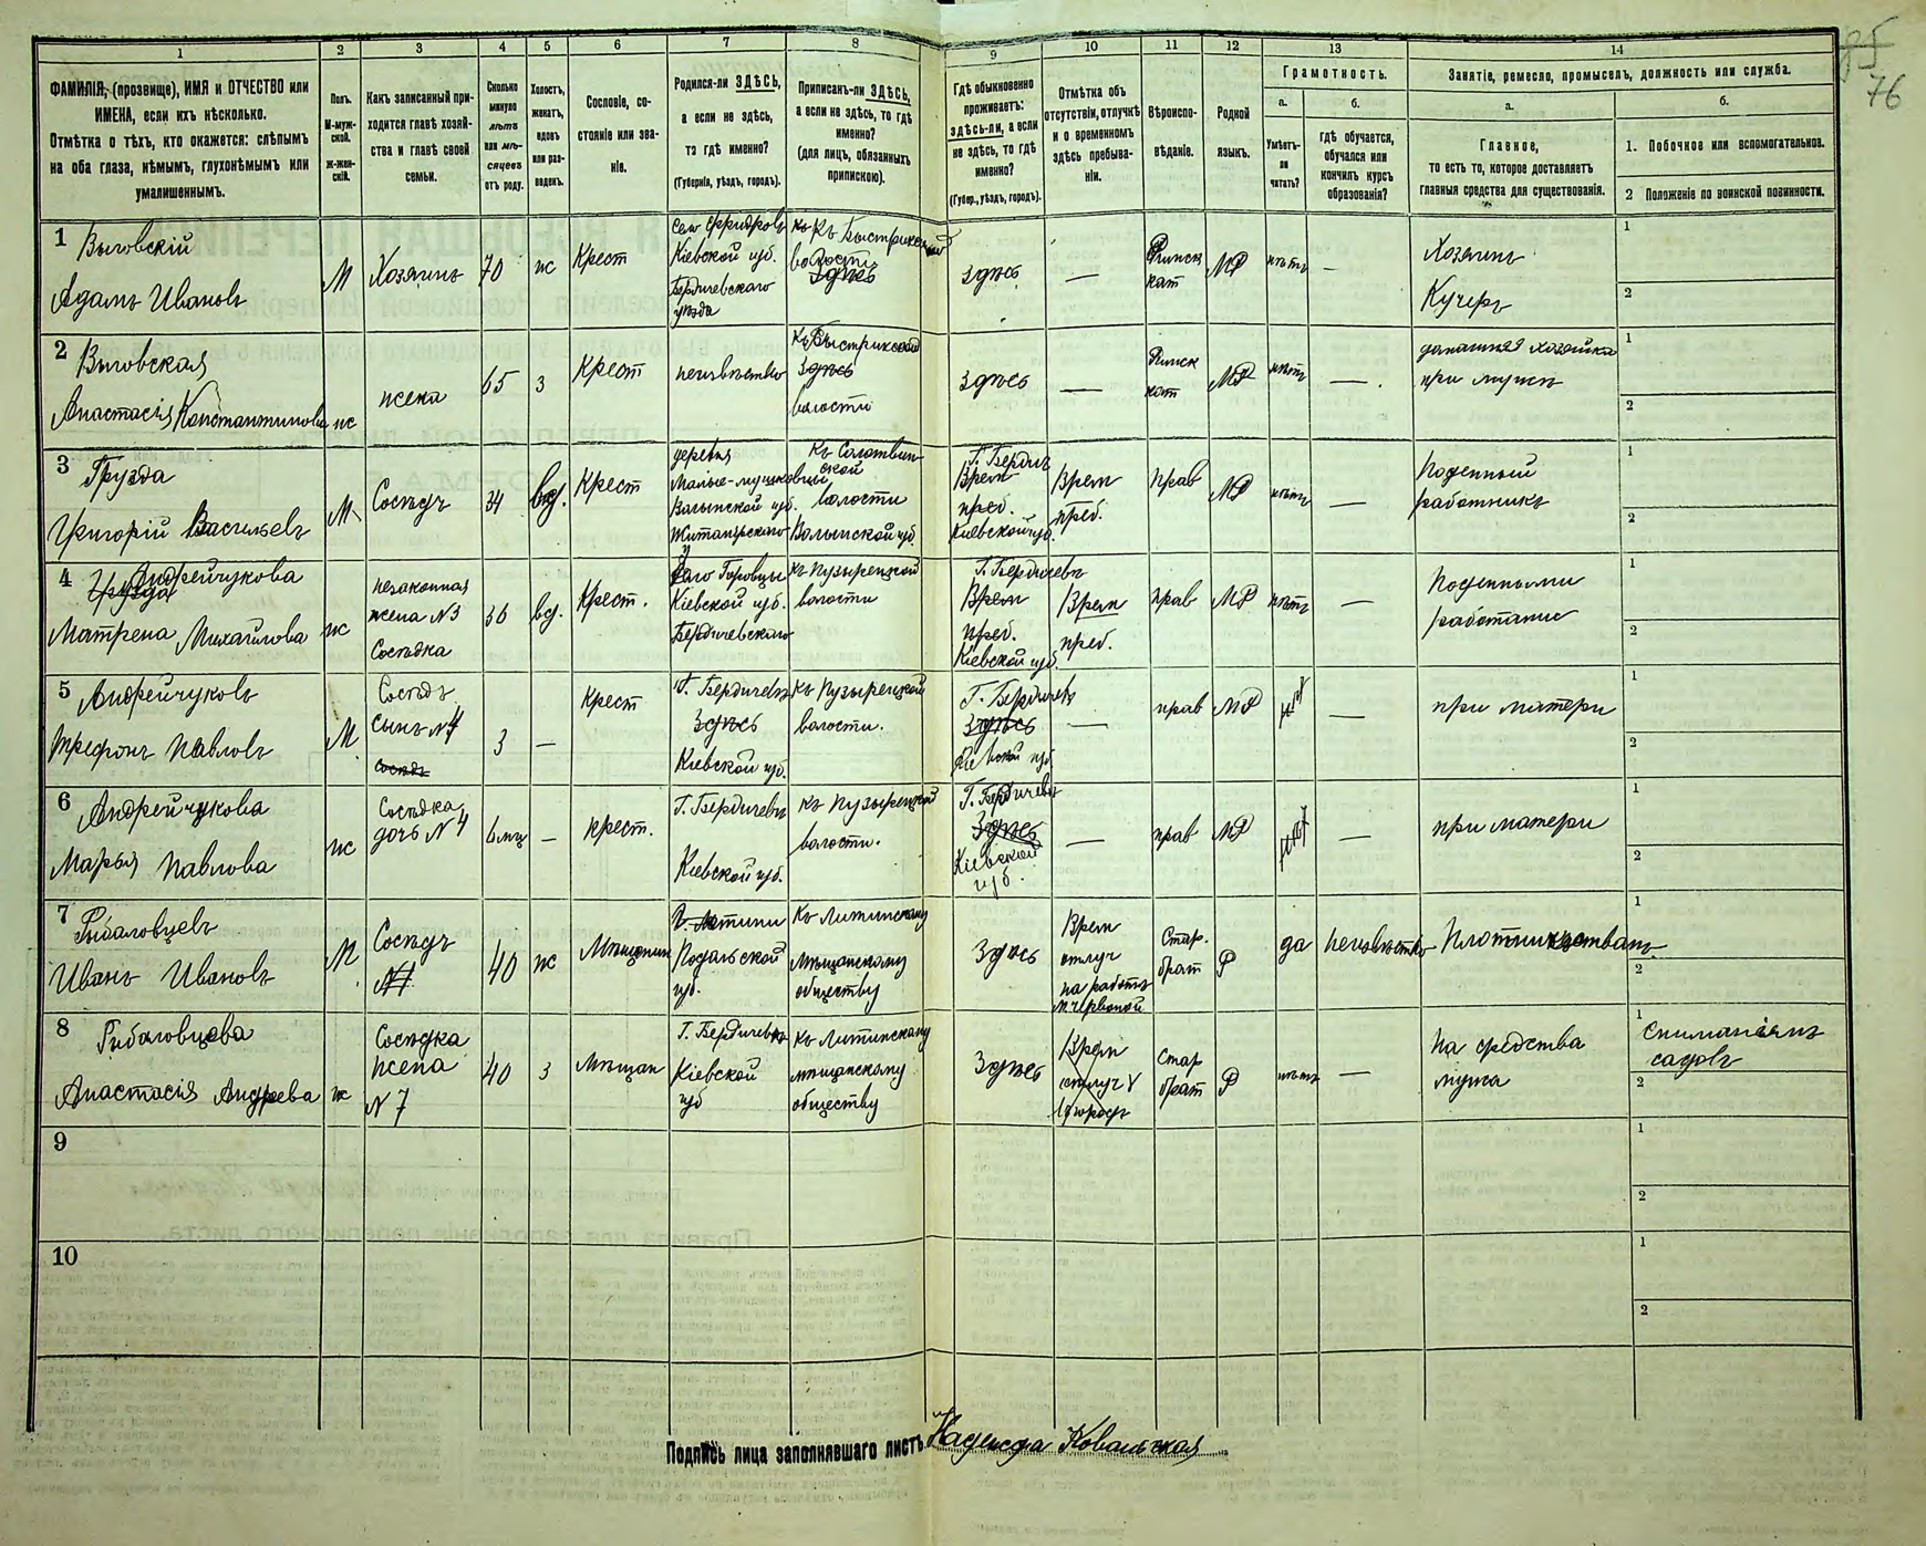 75
76
1
2
3
4
5
6
7
8
9
10
11
12
13
14
ФАМИЛІЯ, (прозвище), ИМЯ и ОТЧЕСТВО или
ИМЕНА, если ихъ нѣсколько.
Отмѣтка о тѣхъ, кто окажется: слѣпымъ
на оба глаза, нѣмымъ, глухонѣмымъ или
умалишеннымъ.
Полъ.
М-муж-
ской.
ж-жен-
скій.
Какъ записанный при-
ходится главѣ хозяй-
ства и главѣ своей
семьи.
Сколько
минуло
лѣтъ
или мѣ-
сяцевъ
отъ роду.
Холостъ,
женатъ,
вдовъ
или раз-
веденъ.
Сословіе, со-
стояніе или зва-
ніе.
Родился-ли ЗДѢСЬ,
а если не здѣсь,
то гдѣ именно?
(Губернія, уѣздъ, городъ).
Приписанъ-ли ЗДѢСЬ,
а если не здѣсь, то гдѣ
именно?
(для лицъ, обязанныхъ
припискою).
Гдѣ обыкновенно
проживаетъ:
здѣсь-ли, а если
не здѣсь, то гдѣ
именно?
(Губер., уѣздъ, городъ).
Отмѣтка объ
отсутствіи, отлучкѣ
и о временномъ
здѣсь пребыва-
ніи.
Вѣроиспо-
вѣданіе.
Родной
языкъ.
Грамотность.
а.
Умѣетъ-
ли
читать?
б.
Гдѣ обучается,
обучался или
кончилъ курсъ
образованія?
Занятіе, ремесло, промыселъ, должность или служба.
а.
Главное,
то есть то, которое доставляетъ
главныя средства для существованія.
б.
1. Побочное или вспомогательное.
2 Положеніе по воинской повинности.
1 Выговскій
Адамъ Ивановъ
М
Хозяинъ
70
ж
Крест
Кіевской губ.
Бердичевскаго
уѣзда
волости
здѣсь
здѣсь
—
Римск
кат
МР
нѣтъ
—
Хозяинъ
Кучеръ
1
2
2 Выговская
Анастасія Константинова
ж
жена
65
з
Крест
неизвѣстно
здѣсь
волости
здѣсь
—
Римск
кат
МР
нѣтъ
—
домашняя хозяйка
при мужѣ
1
2
3 Грузда
Григорій Васильевъ
М
Сосѣдъ
34
вд.
Крест
деревня
Волынской губ.
Житомірскаго
волости
Волынской губ.
Г. Бердич
Врем
преб.
Кіевской губ.
Врем
преб.
Прав
МР
нѣтъ
—
Поденный
работникъ
1
2
4 Андрейчукова
Грузда
Матрена Михайлова
ж
незаконная
жена №3
Сосѣдка
36
вд.
Крест.
Кіевской губ.
Бердичевскаго
къ Пузырецкой
волости
Г. Бердичевъ
Врем
преб.
Кіевской губ.
Врем
преб.
прав
МР
нѣтъ
—
Поденными
работами
1
2
5 Андрейчуковъ
Трефонъ Павловъ
М
Сосѣдъ
сынъ №4
сосѣдъ
3
—
Крест
Г. Бердичевъ
здѣсь
Кіевской губ.
къ Пузырецкой
волости.
Г. Бердичевъ
здѣсь
Кіевской губ
—
прав
МР
нѣтъ
—
при матери
1
2
6 Андрейчукова
Марья Павлова
ж
Сосѣдка
дочь №4
6 мц
—
крест.
Г. Бердичевъ
Кіевской губ.
къ Пузырецкой
волости.
Г. Бердичевъ
здѣсь
Кіевской
губ.
—
прав
МР
нѣтъ
—
при матери
1
2
7 Рибаловцевъ
Иванъ Ивановъ
М
Сосѣдъ
40
ж
Мѣщанин
Г. Литини
Подольской
губ.
Къ Литинскому
мѣщанскому
обществу
Здѣсь
Врем
отлуч
на работы
Стар.
брат
Р
да
неизвѣстно
Плотничествомъ
1
2
8 Рибаловцева
Анастасія Андреева
ж
Сосѣдка
жена
№ 7
40
з
Мѣщан
Г. Бердичевъ
Кіевской
губ
къ Литинскому
мѣщанскому
обществу
Здѣсь
Врем
отлуч
Стар
брат
Р
нѣтъ
—
На средства
мужа
1
сниманіемъ
садовъ
2
9
1
2
10
1
2
Подпись лица заполнявшаго листъ Надежда Ковальская